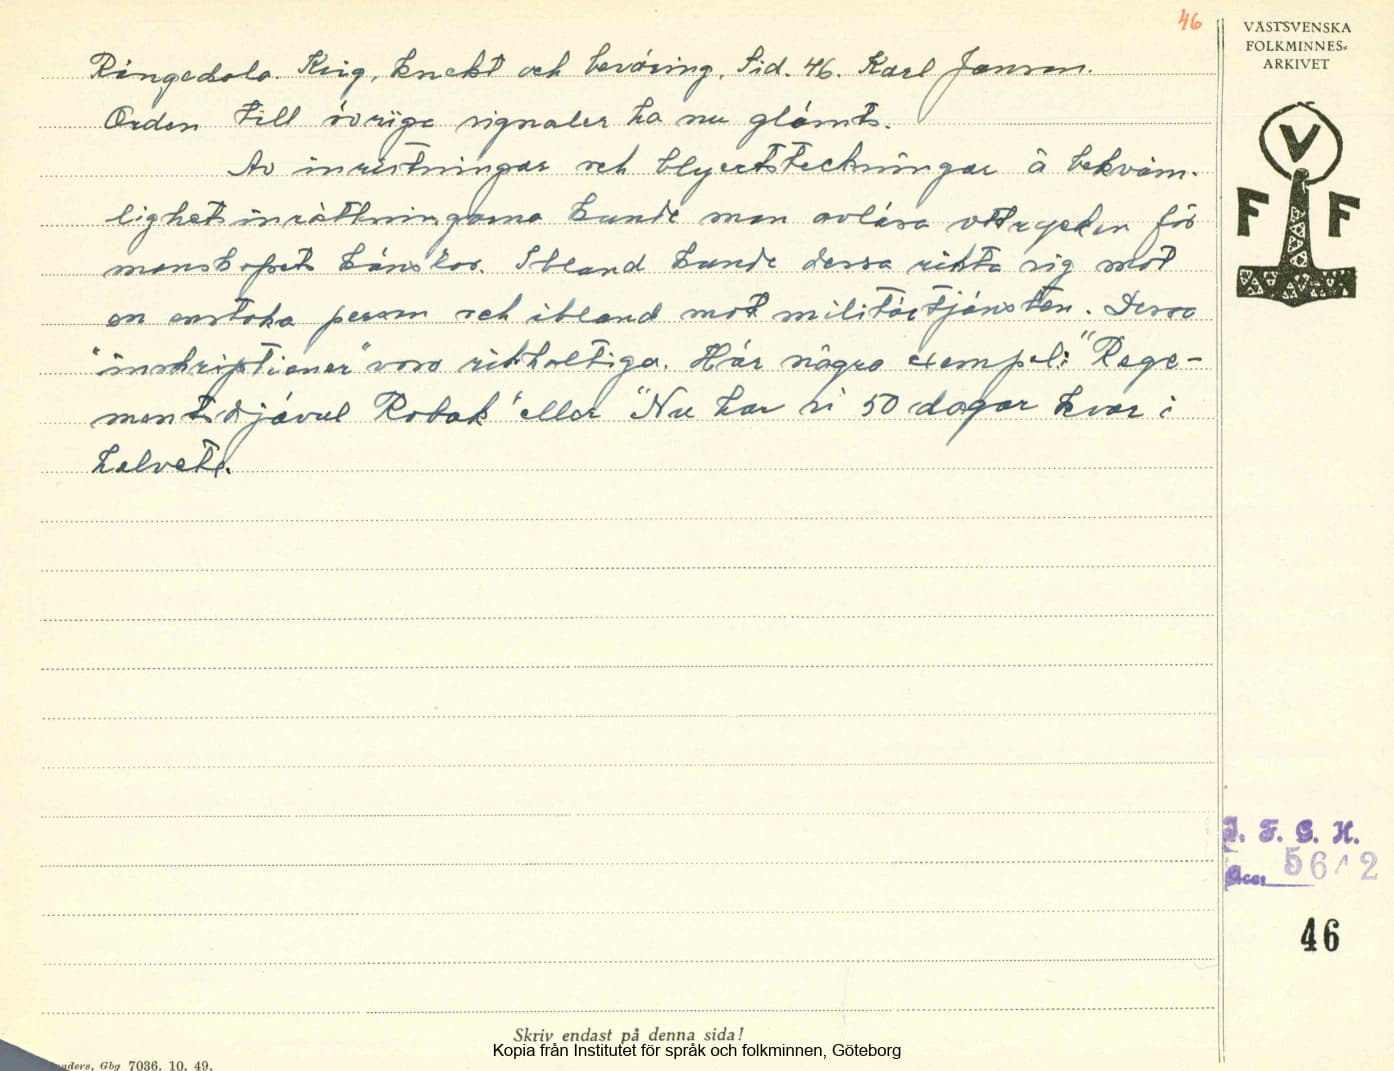 46
VÄSTSVENSKA
FOLKMINNES-
ARKIVET
V
F F
Ringedala. Krig, knekt och beväring. Sid. 46. Karl Janson.
Orden till övriga signaler ha nu glömts.
Av inristningar och blyertsteckningar å bekväm-
lighetsinrättningarna kunde man avlära uttrycken för
manskapets känslor. Ibland kunde dessa rikta sig mot
en enstaka person och ibland mot militärtjänsten. Dessa
"inskriptioner" voro rikhaltiga. Här några exempel: "Rege-
mentsdjävul Robak" eller "Nu har vi 50 dagar kvar i
helvete.
I. F. G. H.
Acc. 5642
46
Skriv endast på denna sida!
Kopia från Institutet för språk och folkminnen, Göteborg
Gbg 7036. 10. 49.